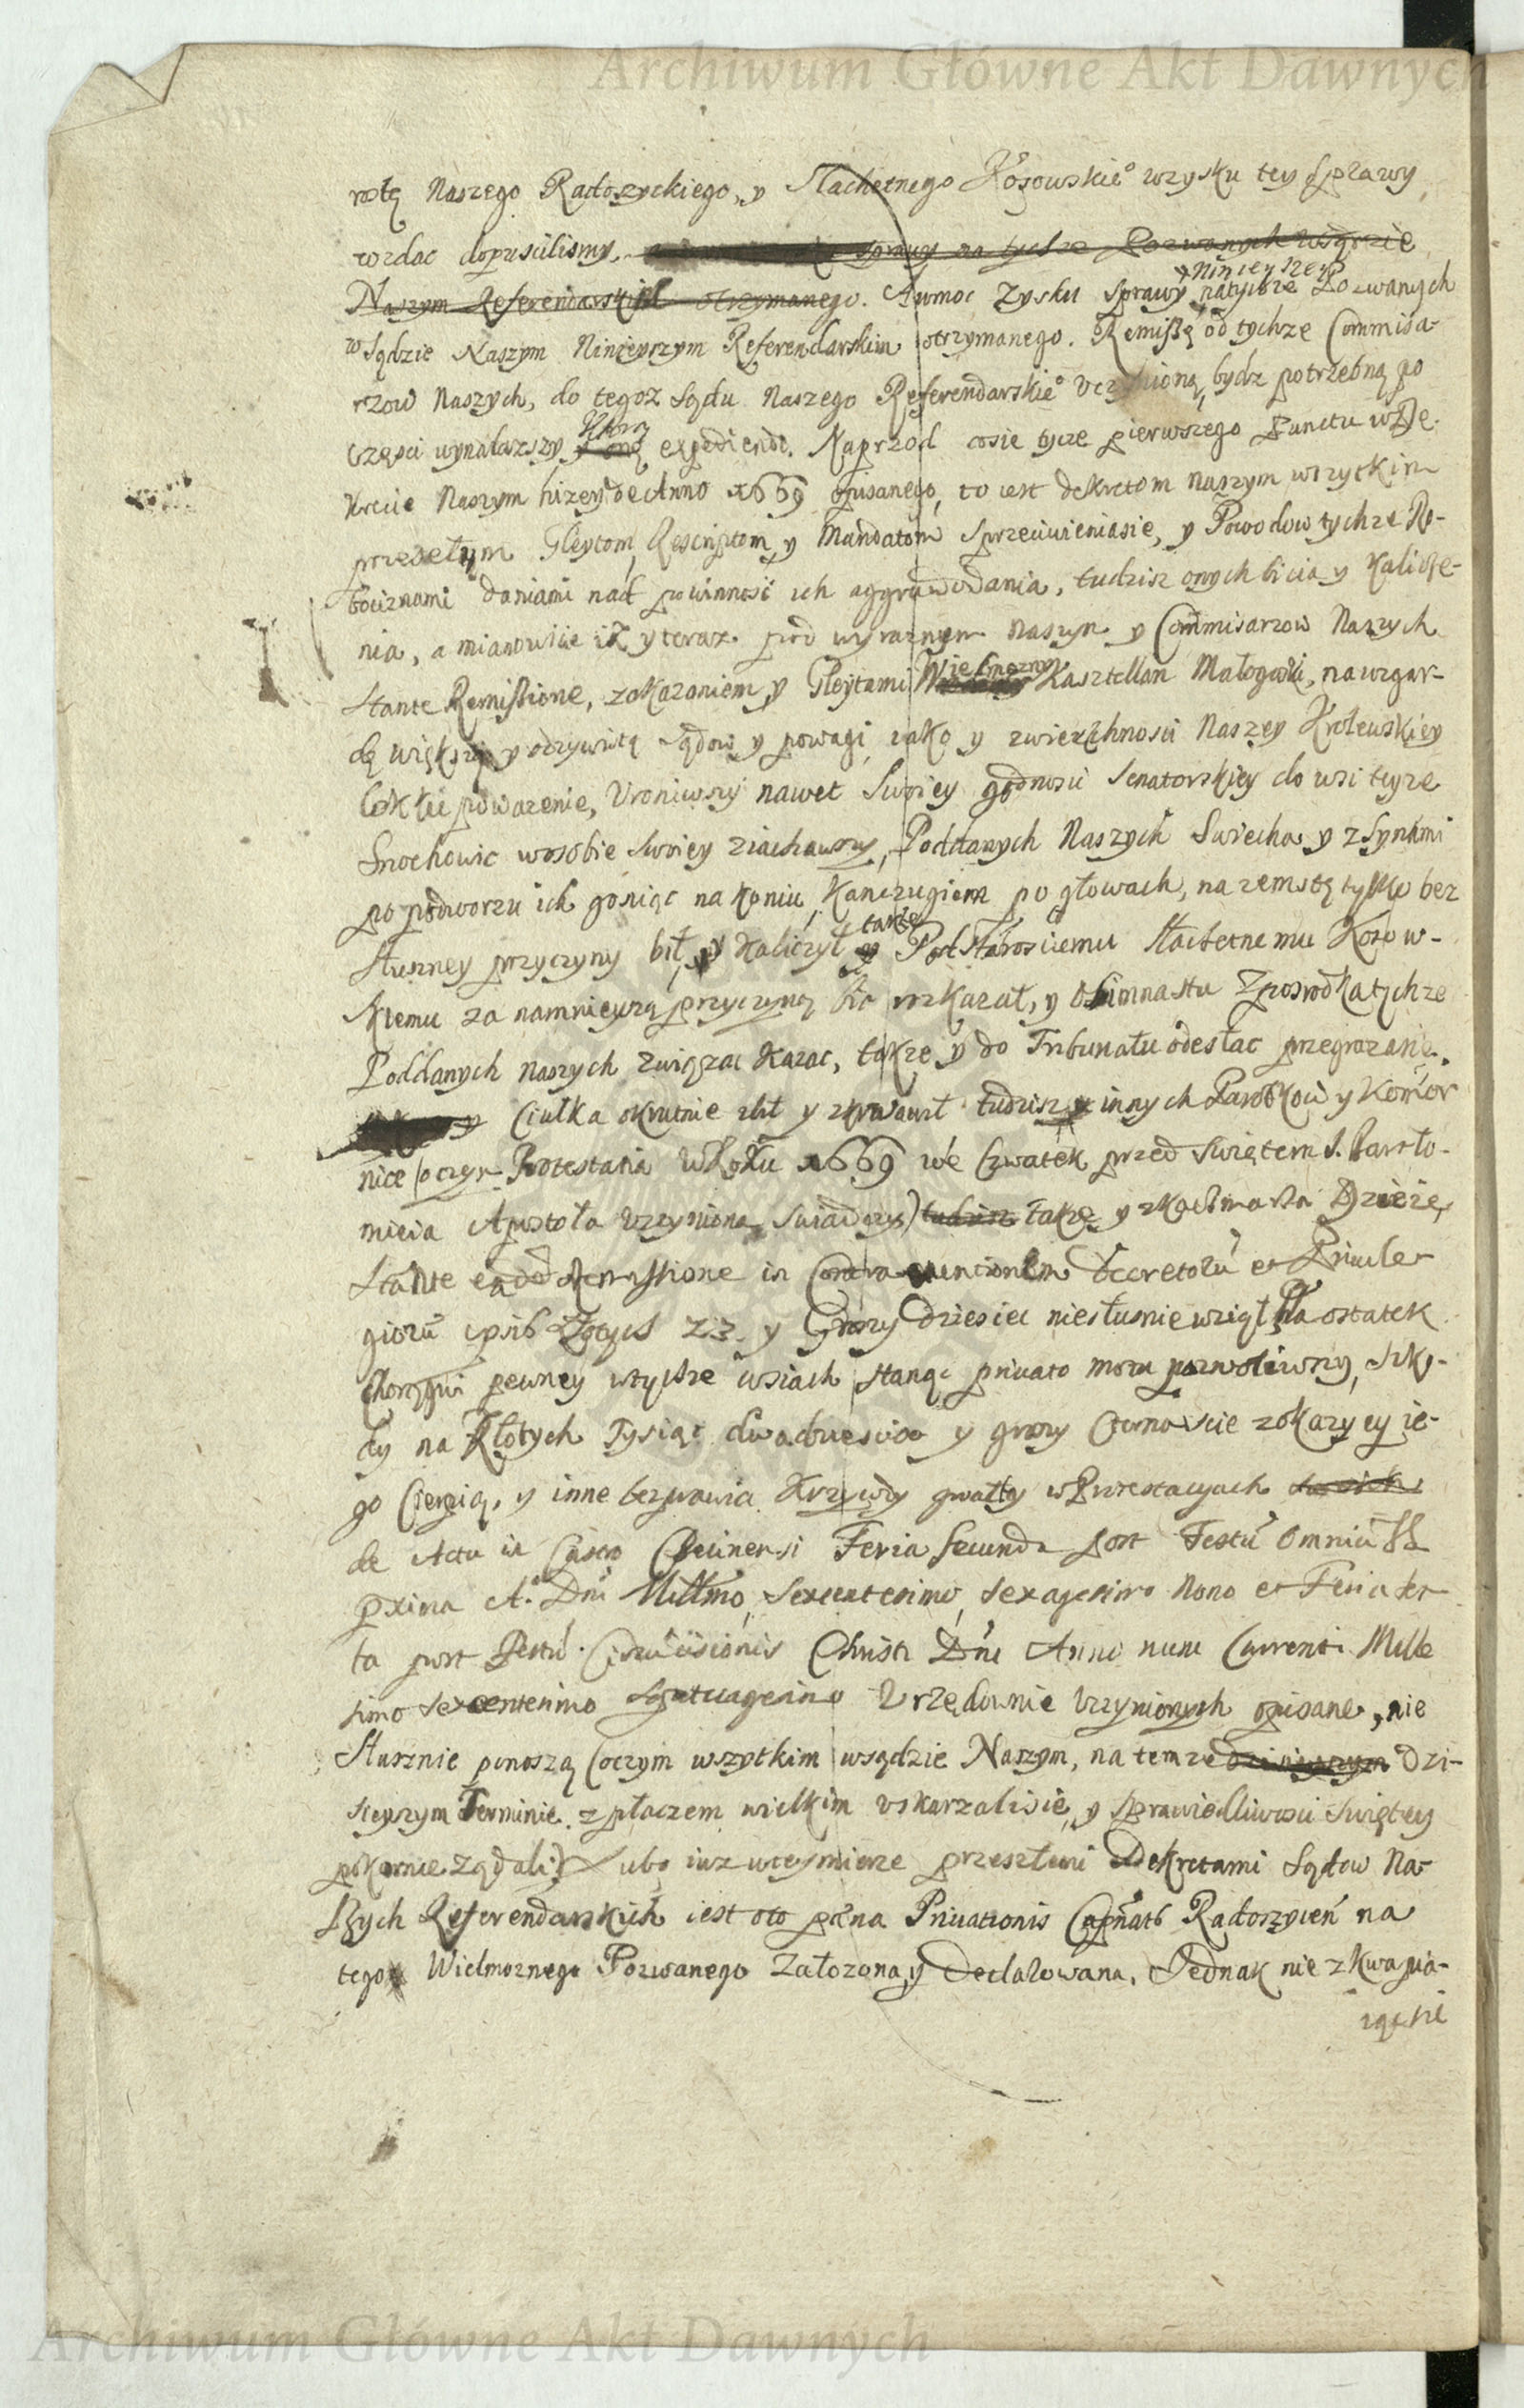 Archiwum Główne Akt Dawnych
rostę Naszego Radoszyckiego, y Slachetnego Kosowskie° wzysku tey sprawy
wzdac dopuscilismy, sprawy na tychze Pozwanych wsądzie
Naszym Referendarskim otrzymanego. Amoc Zysku sprawy ninieyszey natychze Pozwanych
w Sądzie Naszym Ninieyszym Referendarskim otrzymanego. Remissę od tychze Commisa-
rzow Naszych, do tegoz Sądu Naszego Referendarskie° Uczynioną, bydz potrzebną po
części wynalazszy, Którą expediendo. Naprzod cosie tycze pierwszego Punctu w De-
krecie Naszym hizey de Anno 1669 opisanego, to iest dekretom naszym wszytkim
przeszłym Gleytom, Rescriptom, y Mandatom Sprzeciwieniasie, y Powodow tychze Ro-
bociznami daniami nad powinność ich aggrawowania, tudzisz onych bicia y Kalicze-
nia, a mianowicie iż y teraz pod wyraznym naszym y Commisarzow Naszych
Stante Remissione, zakazaniem, y Gleytami Wielmozny Kasztellan Małogoski, na wzgar-
dę większą y oczywistą Sądow y powagi, iako y zwierzchnosci Naszey Krolewskiey
lekkie powazenie, Uroniwszy nawet Swoiey godnosci Senatorskiey do wsi teyze
Snochowic wosobie swoiey ziachawszy, Poddanych Naszych Swiecha y zsynami
po podworzu ich goniąc na koniu, Kanczugiem po głowach, na zemstę tylko bez
Słuszney przyczyny bił, y Kaliczył także Podstarosciemu Slachetnemu Kosow-
skiemu za namnieyszą przyczyną bic rozkazał, y Osimnastu Zposrodka tychze
Poddanych naszych Związac Kazac, także y do Trybunału odesłac przegrazanie.
y Ciułka okrutnie zbił y zkrwawił tudzisz y innych Parobkow y Komor
nice (oczym Protestatia w Roku 1669 we Czwartek przed Swiętem S. Bartło-
mieia Apostoła Uczyniona, swiadczy) tudzisz także y zKaczmarza Dzieże,
Stante eadem Remissione in Contraventionem Decretorũ et Privile-
giorũ ipsis Złotych 23. y Groszy Dziesiec niesłusnie wziął, Na ostatek
Chorągwi pewney wtychze wsiach stanąc privato more pozwoliwszy, szko-
dy na Złotych Tysiąc dwadziescia y groszy Czternascie zokazyey ie-
go Cierpią, y inne bezprawia Krzywdy gwałty w Protestacyach
de Actu in Castro Checinensi Feria Secunda post Festũ Omniũ SS
pxima A° Dni Millmo, Sexcentesimo, Sexagesimo Nono et Feria ter
ta post Festũ Circũcisionis Christi Dni Anno nunc Currenti Mille
simo Sexcentesimo Septuagesimo Urzędownie Uczynionych opisane, nie
Słusznie ponoszą (oczym wszytkim wsądzie Naszym, na temze dzi-
sieyszym Terminie, z płaczem wielkim uskarzalisie, y Sprawiedliwosci Swiętey
pokornie Ządali) Lubo iuz wteymierze przeszłemi Dekretami Sądow Na-
szych Referendarskich iest oto pæna Privationis Capñatus Radoszyceń na
tego Wielmoznego Pozwanego Załozona, y Declarowana, Jednak nie zkwapia-
iąc sie
Archiwum Główne Akt Dawnych